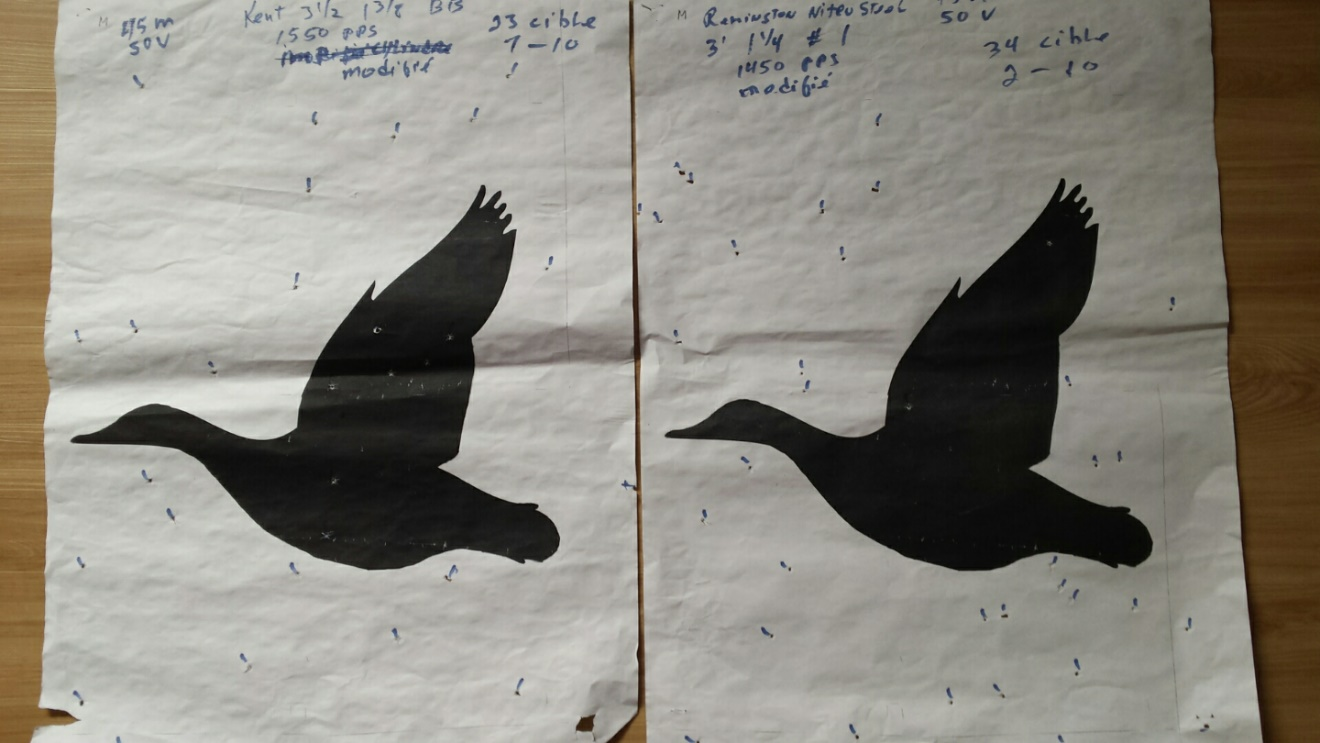 45 m
50 V
Kent 3 1/2 1 3/8 BB
1550 pps
modifié
23 cible
7 - 10
M Remington Nitro Steel
3' 1 1/4 # 1
1450 pps
modifié
50 V
34 cible
2 - 10